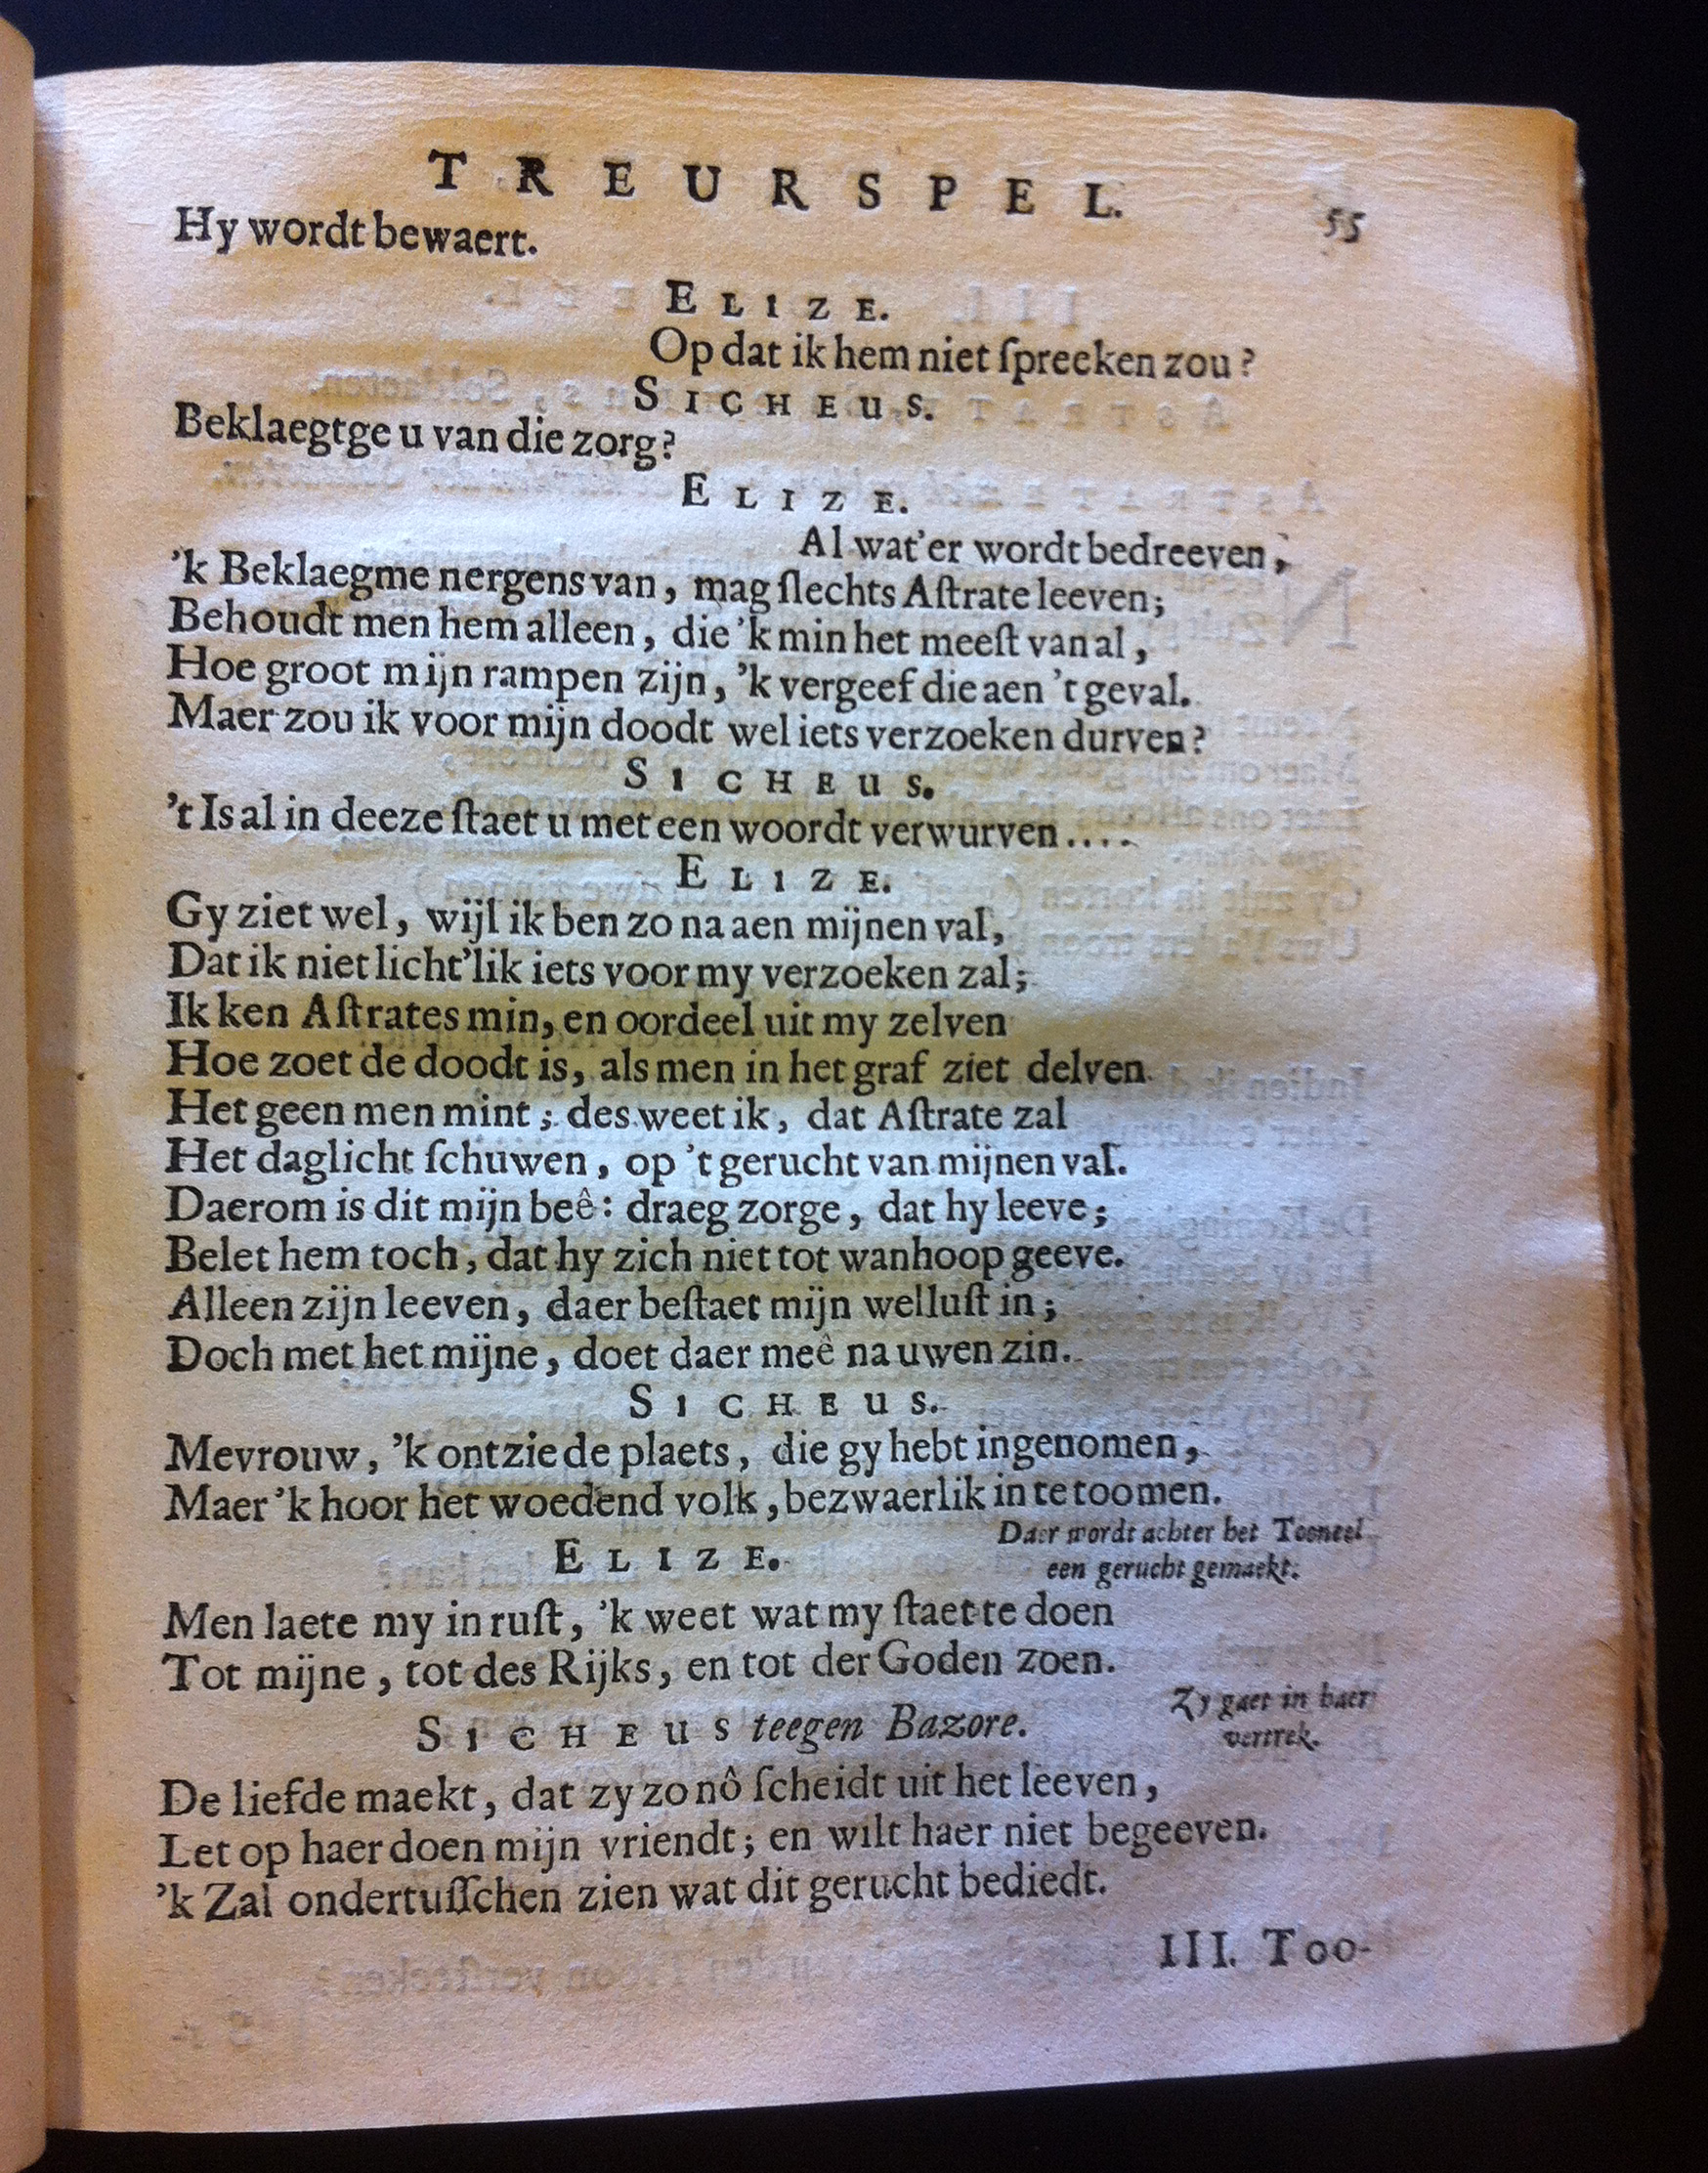 TREURSPEL. 55
Hy wordt bewaert.
ELIZE.
Op dat ik hem niet ſpreeken zou?
SICHEUS.
Beklaegtge u van die zorg?
ELIZE.
Al wat'er wordt bedreeven,
'k Beklaegme nergens van, mag ſlechts Aſtrate leeven;
Behoudt men hem alleen, die 'k min het meeſt van al,
Hoe groot mijn rampen zijn, 'k vergeef die aen 't geval.
Maer zou ik voor mijn doodt wel iets verzoeken durven?
SICHEUS.
't Is al in deeze ſtaet u met een woordt verwurven....
ELIZE.
Gy ziet wel, wijl ik ben zo na aen mijnen val,
Dat ik niet licht'lik iets voor my verzoeken zal;
Ik ken Aſtrates min, en oordeel uit my zelven
Hoe zoet de doodt is, als men in het graf ziet delven
Het geen men mint; des weet ik, dat Aſtrate zal
Het daglicht ſchuwen, op 't gerucht van mijnen val.
Daerom is dit mijn beê: draeg zorge, dat hy leeve;
Belet hem toch, dat hy zich niet tot wanhoop geeve.
Alleen zijn leeven, daer beſtaet mijn welluſt in;
Doch met het mijne, doet daer meê na uwen zin.
SICHEUS.
Mevrouw, 'k ontzie de plaets, die gy hebt ingenomen,
Maer 'k hoor het woedend volk, bezwaerlik in te toomen.
Daer wordt achter het Tooneel
een gerucht gemaekt.
ELIZE.
Men laete my in ruſt, 'k weet wat my ſtaet te doen
Tot mijne, tot des Rijks, en tot der Goden zoen.
Zy gaet in haer
vertrek.
SICHEUS teegen Bazore.
De liefde maekt, dat zy zo nô ſcheidt uit het leeven,
Let op haer doen mijn vriendt; en wilt haer niet begeeven.
'k Zal ondertuſſchen zien wat dit gerucht bediedt.
III. Too-